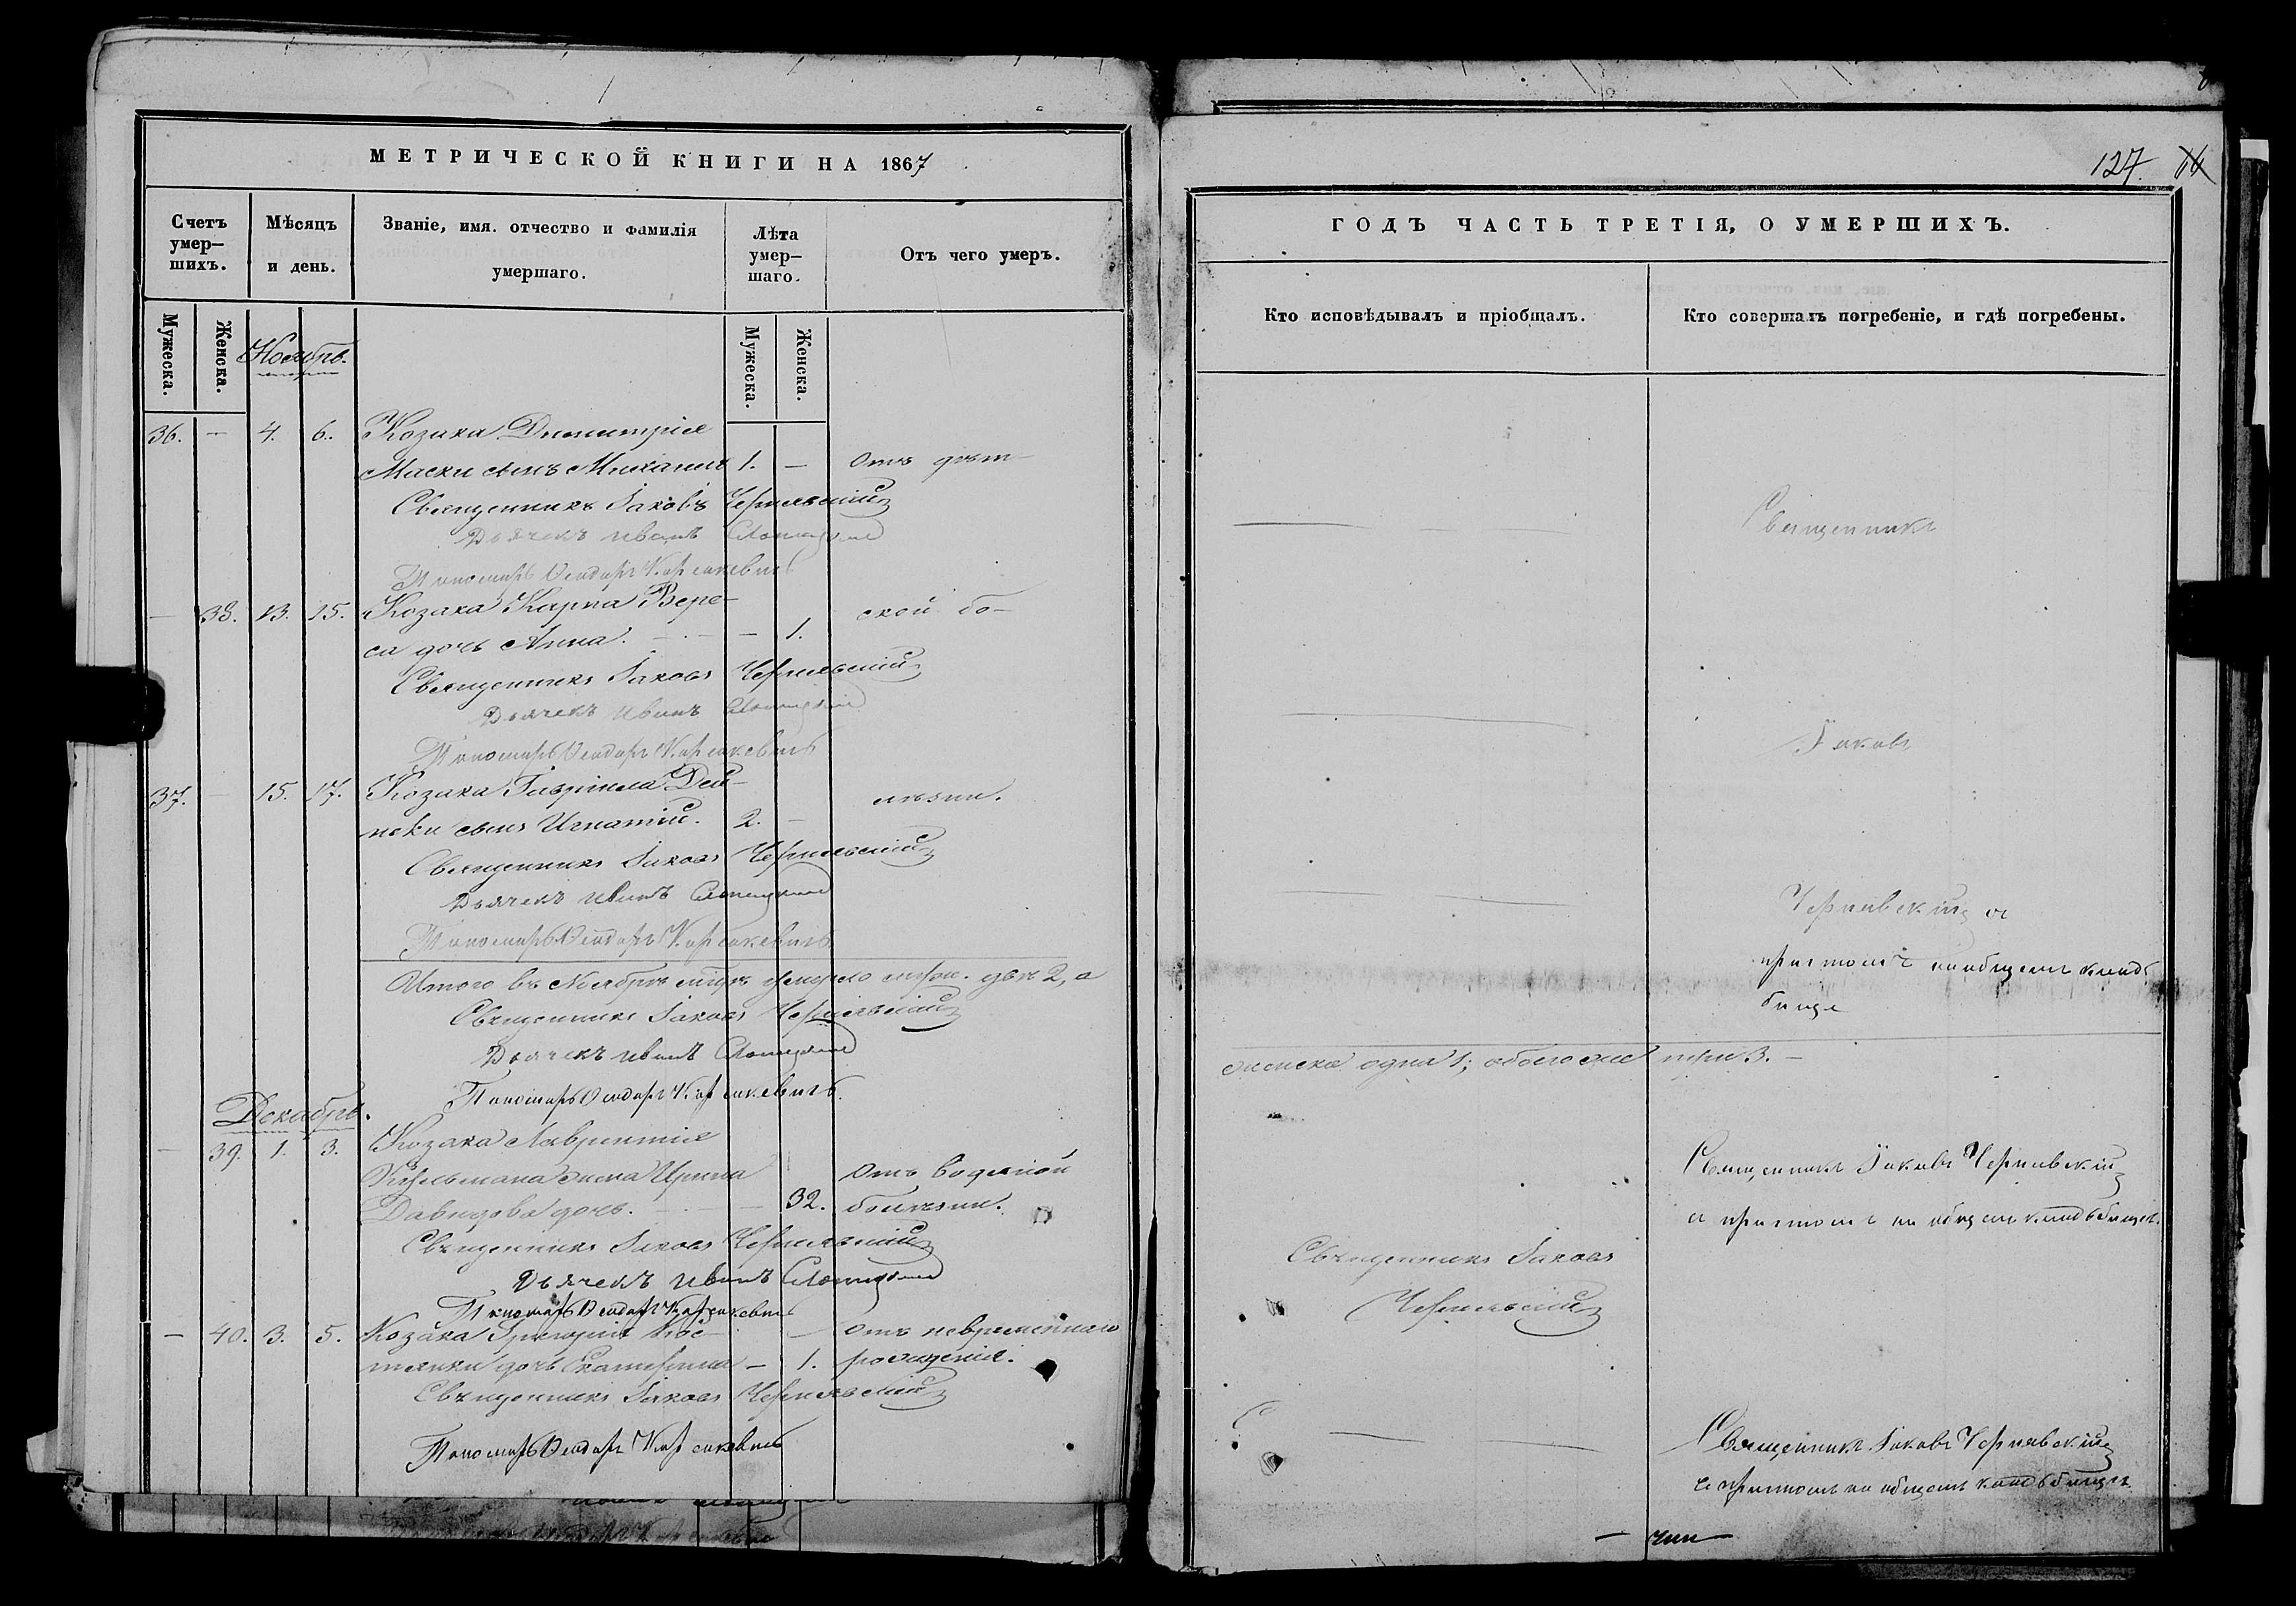 МЕТРИЧЕСКОЙ КНИГИ НА 1867
Счетъ умер–шихъ.
Мѣсяцъ и день.
Званіе, имя. отчество и фамилія умершаго.
Лѣта умер–шаго.
Отъ чего умеръ.
Мужеска.
Женска.
Мужеска.
Женска.
Ноябрь.
36. — 4. 6. Козака Димитрія
Маски сынъ Михаилъ 1. — Отъ дѣт–
Священникъ Іаковъ Чернявскій
Дьячекъ Иванъ
Пономарь Феодоръ
— 38. 13. 15. Козака Карпа Вере–
са дочь Анна. — 1. ской бо–
Священникъ Іаковъ Чернявскій
Дьячекъ Иванъ
Пономарь Феодоръ
37. — 15. 17. Козака Гавріила Дей–
неки сынъ Игнатій. 2. — лѣзни.
Священникъ Іаковъ Чернявскій
Дьячекъ Иванъ
Пономарь Феодоръ
Итого въ Ноябрѣ умерло муж. два 2, а
Священникъ Іаковъ Чернявскій
Дьячекъ Иванъ
Пономарь Феодоръ
Декабрь.
— 39. 1. 3. Козака Лаврентія
жена Ирина Отъ водяной
Давидова дочь. — 32. болѣзни.
Священникъ Іаковъ Чернявскій
Дьячекъ Иванъ
Пономарь Феодоръ
— 40. 3. 5. Козака Григорія Кос– — Отъ невременнаго
тянки дочь Екатерина — 1. рожденія.
Священникъ Іаковъ Чернявскій
Пономарь Феодоръ
127.
ГОДЪ ЧАСТЬ ТРЕТІЯ, О УМЕРШИХЪ.
Кто исповѣдывалъ и пріобщалъ.
Кто совершалъ погребеніе, и гдѣ погребены.
Священникъ
Іаковъ
Чернявскій съ
причтомъ на общемъ клад
бищѣ
женска одна 1; обоего же три 3. —
Священникъ Іаковъ Чернявскій
съ причтомъ на общемъ кладбищѣ.
Священникъ Іаковъ
Чернявскій
Священникъ Іаковъ Чернявскій
съ причтомъ на общемъ кладбищѣ